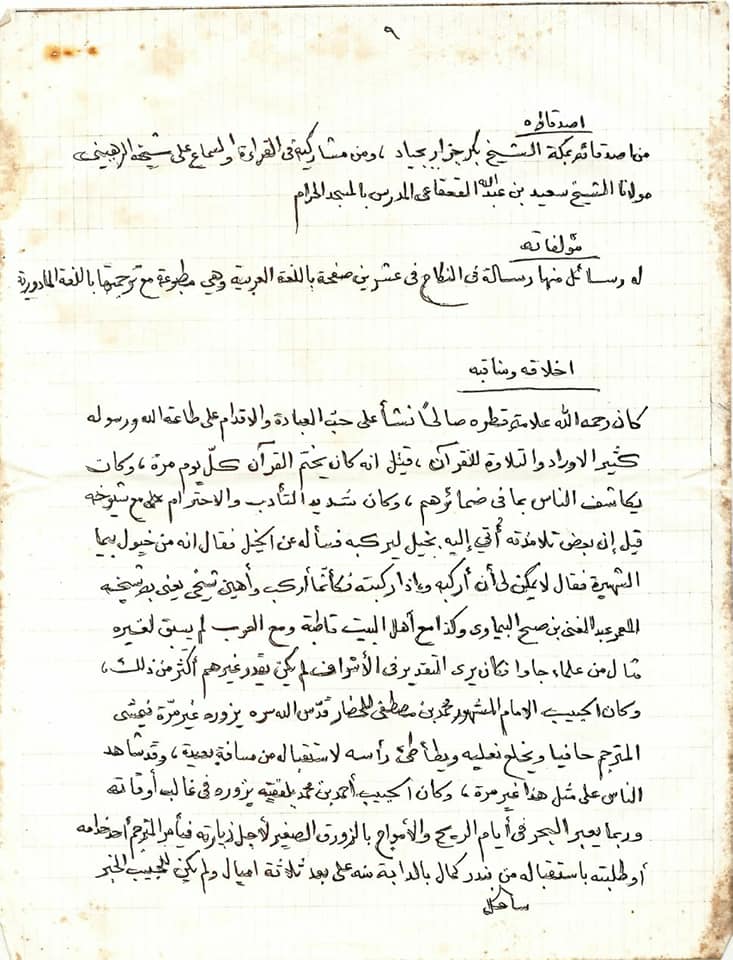 ٩
اصدقاؤه
من اصدقائه بمكة الشيخ بكر جزار بجياد ، ومن مشاركيه فى القراءة والسماع على شيخه الرهبيني
مولانا الشيخ سعيد بن عبد الله القعقاعى المدرس بالمسجد الحرام
مؤلفاته
له رسائل منها رسالة فى النكاح فى عشرين صفحة باللغة العربية وهي مطبوعة مع ترجمتها باللغة المادورية
اخلاقه ومناقبه
كان رحمه الله علامة قطره صالحًا نشأ على حبّ العبادة والاقدام على طاعة الله ورسوله
كثير الاوراد والتلاوة للقرآن ، قيل انه كان يختم القرآن كلّ يوم مرة ، وكان
يكاشف الناس بما فى ضمائرهم ، وكان شديد التأدب والاحترام مع شيوخه
قيل إن بعض تلامذته أُتي إليه بخيل ليركبه فسأله عن الخيل فقال انه من خيول بيما
الشهيرة فقال لا يمكن لى أن أركبه وإذا ركبته فكأنما أركب وأهين شيخي يعنى به شيخه
المعمر عبد الغنى بن صبح البيماوى وكذا مع أهل البيت قاطبة ومع العرب لم يسبق لغيره
مثال من علماء جاوا فكان يرى التقدير فى الأشراف لم يكن يقدر غيرهم أكثر من ذلك ،
وكان الحبيب الامام المشهور محمد بن مصطفى المحضار قدّس الله سره يزوره غير مرّة فيمشى
المترجم حافيا ويخلع نعليه ويطأطئ رأسه لاستقباله من مسافة بعيدة ، وقد شاهد
الناس على مثل هذا غير مرة ، وكان الحبيب أحمد بن محمد بلفقيه يزوره فى غالب أوقاته
وربما يعبر البحر فى أيام الريح والأمواج بالزورق الصغير لأجل زيارته فيأمر المترجم أحد خدامه
أو طلبته باستقباله من بندر كمال بالدابة منه على بعد ثلاثة اميال ولم يكن للحبيب الخبر